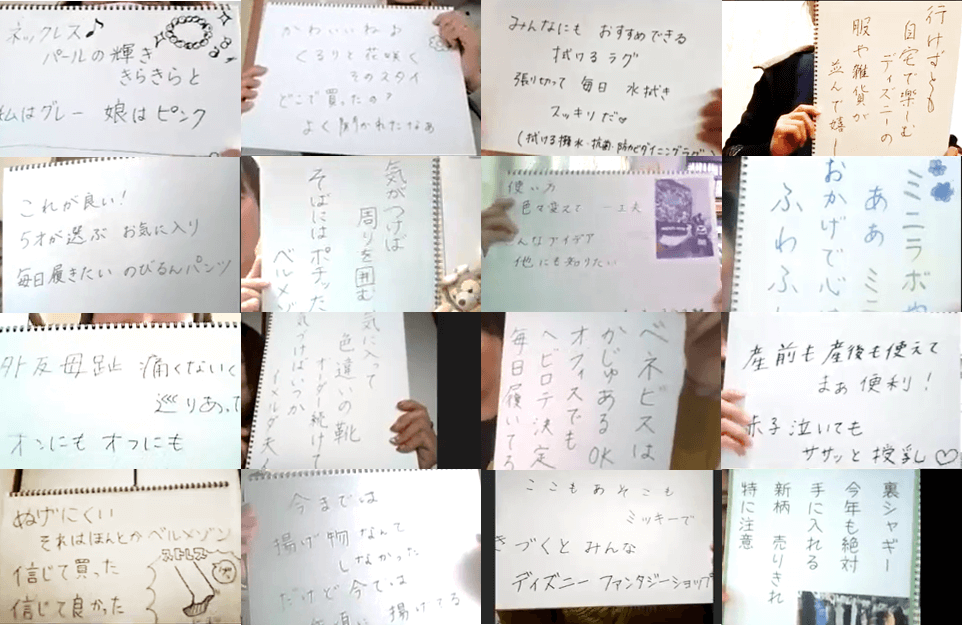 ネックレス♪
パールの輝き
きらきらと
私はグレー 娘はピンク
かわいいねぇ
くるりと花咲く
そのスタイ
どこで買ったの?
よく聞かれたなぁ
みんなにも おすすめできる
拭けるラグ
張り切って 毎日 水拭き
スッキリだッ
(拭ける撥水・抗菌・防カビダイニングラグ)
行けずとも
自宅で楽しむ
ディズニーの
服や雑貨が
並んで嬉し
これが良い!
5才が選ぶ お気に入り
毎日履きたい のびるんパンツ
気がつけば
周りを囲む
そばにはポチッた
ベルメゾ
使い方
色々変えて 一工夫
んなアイデア
他にも知りたい
ミニラボや
ああ ミニ
おかげで心
ふわふ
外反母趾 痛くないく
巡りあって
オンにも オフにも
気に入って
色違いの靴
オーダー続けて
気づけばいつか
イメルダ夫人
ベネビスは
かじゅあるOK
オフィスでも
ヘビロテ決定
毎日履いてる
産前も産後も使えて
まぁ便利!
赤子泣いても
ササッと授乳♡
ぬげにくい
それはほんとか ベルメゾン
信じて買った
信じて良かった
ストレス
今までは
揚げ物なんて
しなかった
だけど今では
揚げてる
ここもあそこも
ミッキーで
きづくと みんな
ディズニー ファンタジーショップ
裏シャギー
今年も絶対
手に入れる
新柄 売りきれ
特に注意